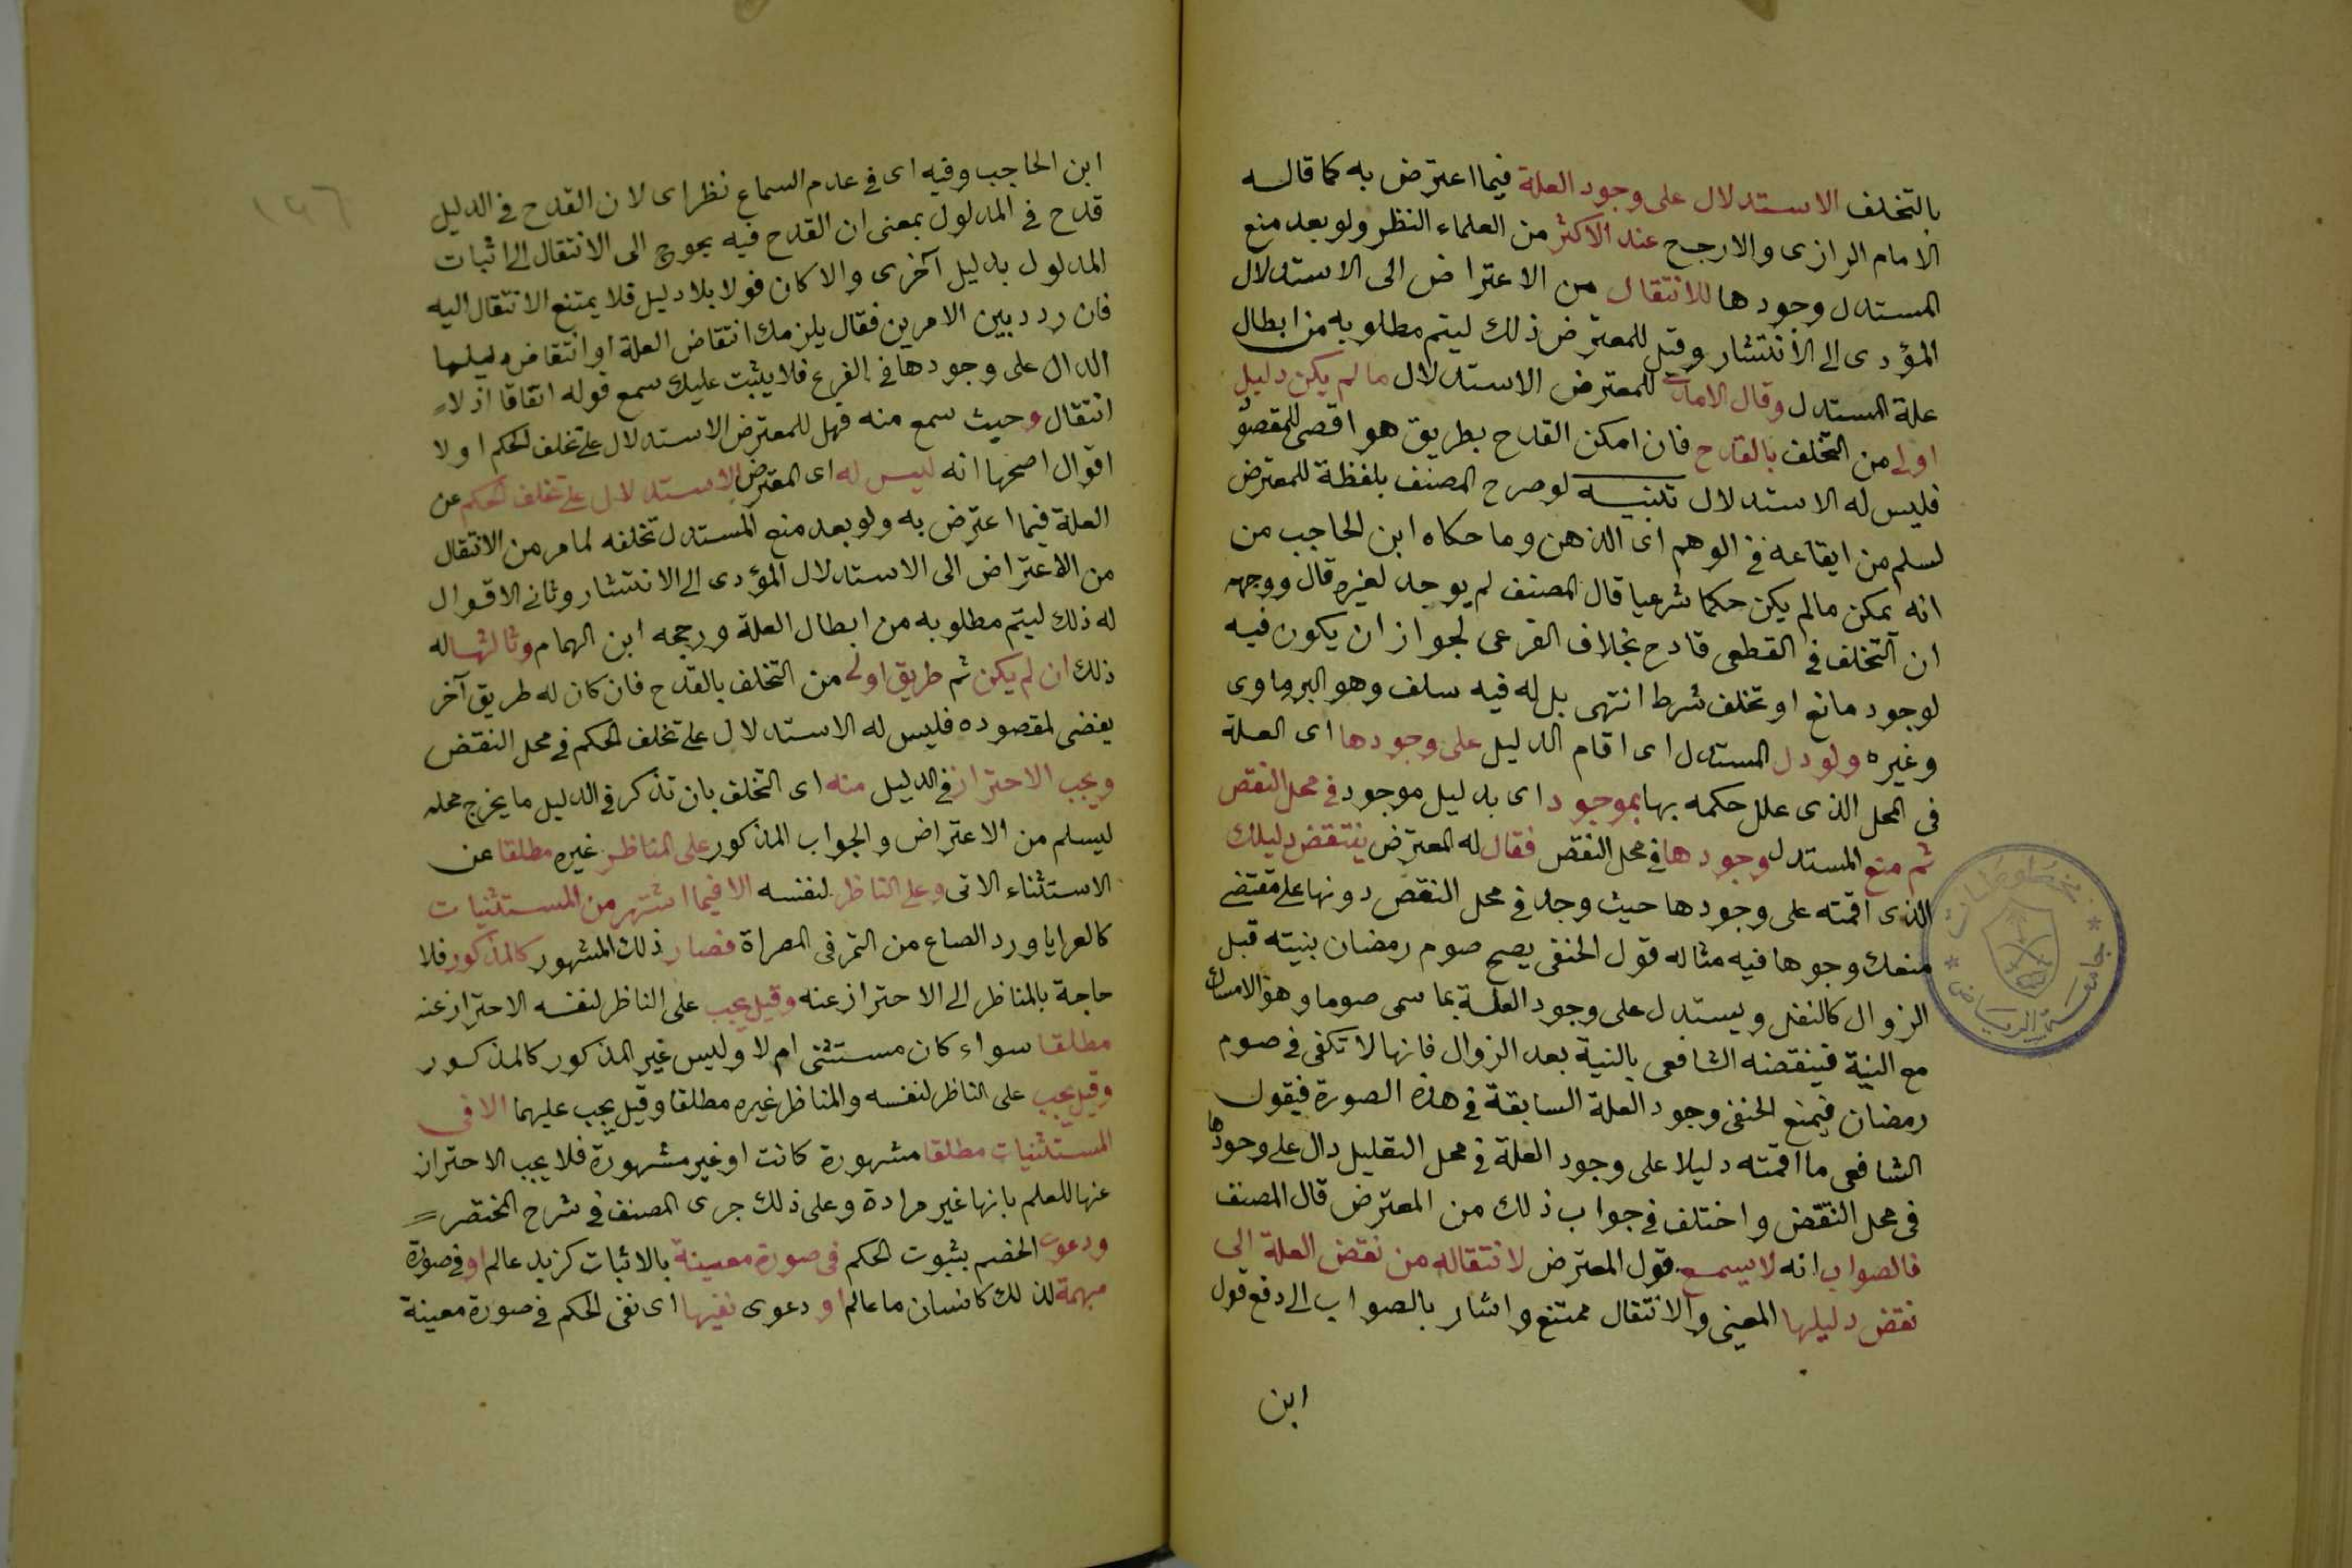 بالتخلف الاستدلال على وجود العلة فيما اعترض به كما قاله
الامام الرازى والارجح عند الاكثر من العلماء النظر ولو بعد منع
المستدل وجودها للانتقال من الاعتراض الى الاستدلال
المؤدى الى الانتشار وقيل للمعترض ذلك ليتم مطلوبه من ابطال
علة المستدل وقال الامدى للمعترض الاستدلال ما لم يكن دليل
اولى من التخلف بالقدح فان امكن القدح بطريق هو اقصى للمقصود
فليس له الاستدلال تنبيه لو صرح المصنف بلفظة للمعترض
لسلم من ايقاعه فى الوهم اى الذهن وما حكاه ابن الحاجب من
انه يمكن مالم يكن حكما شرعيا قال المصنف لم يوجد لغيره قال ووجهه
ان التخلف فى القطعى قادح بخلاف الفرعى لجواز ان يكون فيه
لوجود مانع او تخلف شرط انتهى بل له فيه سلف وهو البرماوى
وغيره ولو دل المستدل اى اقام الدليل على وجودها اى العلة
فى المحل الذى علل حكمه بها بموجود اى بدليل موجود فى محل النقض
ثم منع المستدل وجودها فى محل النقض فقال له المعترض ينتقض دليلك
الذى اقمته على وجودها حيث وجد فى محل النقض دونها على مقتضى
منعك وجوها فيه مثاله قول الحنفى يصح صوم رمضان بنيته قبل
الزوال كالنفل ويستدل على وجود العلة بما سمى صوما وهو الامساك
مع النية فينقضه الشافعى بالنية بعد الزوال فانها لا تكفى فى صوم
رمضان فيمنع الحنفى وجود العلة السابقة فى هذه الصورة فيقول
الشافعى ما اقمته دليلا على وجود العلة فى محل التقليل دال على وجودها
فى محل النقض واختلف فى جواب ذلك من المعترض قال المصنف
فالصواب انه لا يسمع قول المعترض لانتقاله من نقض العلة الى
نقض دليلها المعنى والانتقال ممتنع واشار بالصواب الى دفع قول
ابن
جامعة الرياض
١٢٦
ابن الحاجب وفيه اى فى عدم السماع نظر اى لان القدح فى الدليل
قدح فى المدلول بمعنى ان القدح فيه يحوج الى الانتقال الى اثبات
المدلول بدليل آخرى والا كان قولا بلا دليل فلا يمتنع الانتقال اليه
فان ردد بين الامرين فقال يلزمك انتقاض العلة او انتقاض دليلها
الدال على وجودها فى الفرع فلا يثبت عليك سمع قوله اتفاقا اذ لا
انتقال وحيث سمع منه فهل للمعترض الاستدلال على تخلف الحكم اولا
اقوال اصحها انه ليس له اى المعترض الاستدلال على تخلف الحكم عن
العلة فيما اعترض به ولو بعد منع المستدل تخلفه لما مر من الانتقال
من الاعتراض الى الاستدلال المؤدى الى الانتشار وثانى الاقوال
له ذلك ليتم مطلوبه من ابطال العلة ورجحه ابن الهمام وثالثها له
ذلك ان لم يكن ثم طريق اولى من التخلف بالقدح فان كان له طريق آخر
يفضى لمقصوده فليس له الاستدلال على تخلف الحكم فى محل النقض
ويجب الاحتراز فى الدليل منه اى التخلف بان تذكر فى الدليل ما يخرج محله
ليسلم من الاعتراض والجواب المذكور على المناظر غيره مطلقا عن
الاستثناء الاتى وعلى الناظر لنفسه الا فيما اشتهر من المستثنيات
كالعرايا ورد الصاع من التمر فى المصراة فصار ذلك المشهور كالمذكور فلا
حاجة بالمناظر الى الاحتراز عنه وقيل يجب على الناظر لنفسه الاحتراز عنه
مطلقا سواء كان مستثنى ام لا وليس غير المذكور كالمذكور
وقيل يجب على الناظر لنفسه والمناظر غيره مطلقا وقيل يجب عليهما الا فى
المستثنيات مطلقا مشهورة كانت او غير مشهورة فلا يجب الاحتراز
عنها للعلم بانها غير مرادة وعلى ذلك جرى المصنف فى شرح المختصر
ودعوى الخصم بثبوت الحكم فى صورة معينة بالاثبات كزيد عالم او فى صورة
مبهمة لذلك كانسان ما عالم او دعوى نفيها اى نفى الحكم فى صورة معينة